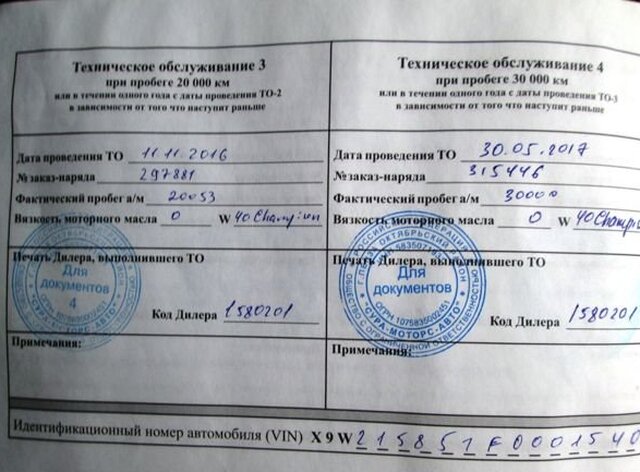 Техническое обслуживание 3
при пробеге 20 000 км
или в течении одного года с даты проведения ТО-2
в зависимости от того что наступит раньше
Дата проведения ТО 11.11.2016
№ заказ-наряда 297881
Фактический пробег а/м 20053
Вязкость моторного масла 0 W 40 Champion
Печать Дилера, выполнившего ТО
Для
документов
4
Код Дилера 1580201
Примечания:
Техническое обслуживание 4
при пробеге 30 000 км
или в течении одного года с даты проведения ТО-3
в зависимости от того что наступит раньше
Дата проведения ТО 30.05.2017
№ заказ-наряда 315446
Фактический пробег а/м 30000
Вязкость моторного масла 0 W 40 Champio
Печать Дилера, выполнившего ТО
Для
документов
ОГРН 1075835002451
"СУРА-МОТОРС-АВТО"
ОБЩЕСТВО С ОГРАНИЧЕННОЙ ОТВЕТСТВЕННОСТЬЮ
Код Дилера 1580201
Примечания:
Идентификационный номер автомобиля (VIN) X 9 W 215851F0001540